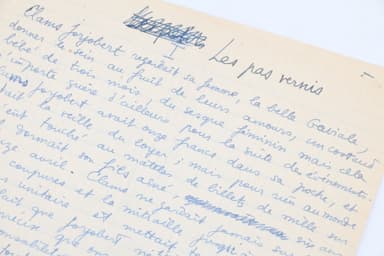 I
Les pas vernis
Clams Jorjobert regardait sa femme, la belle Gaviale,
donner le sein au fruit de leurs amours, un costaud
bébé de trois mois du sesque féminin mais cela
importe guère d'ailleurs pour la suite des événements.
Clams Jorjobert avait onze francs dans sa poche, et
la veille du loyer ; mais pour rien au monde
touché au matelas de billets de mille sur
dormait son fils aîné, six ans
avril. Clams ne gardait jamais sur
coupures et la mitraille jusqu'à
unitaire et mettait to
que Jorjobert
que